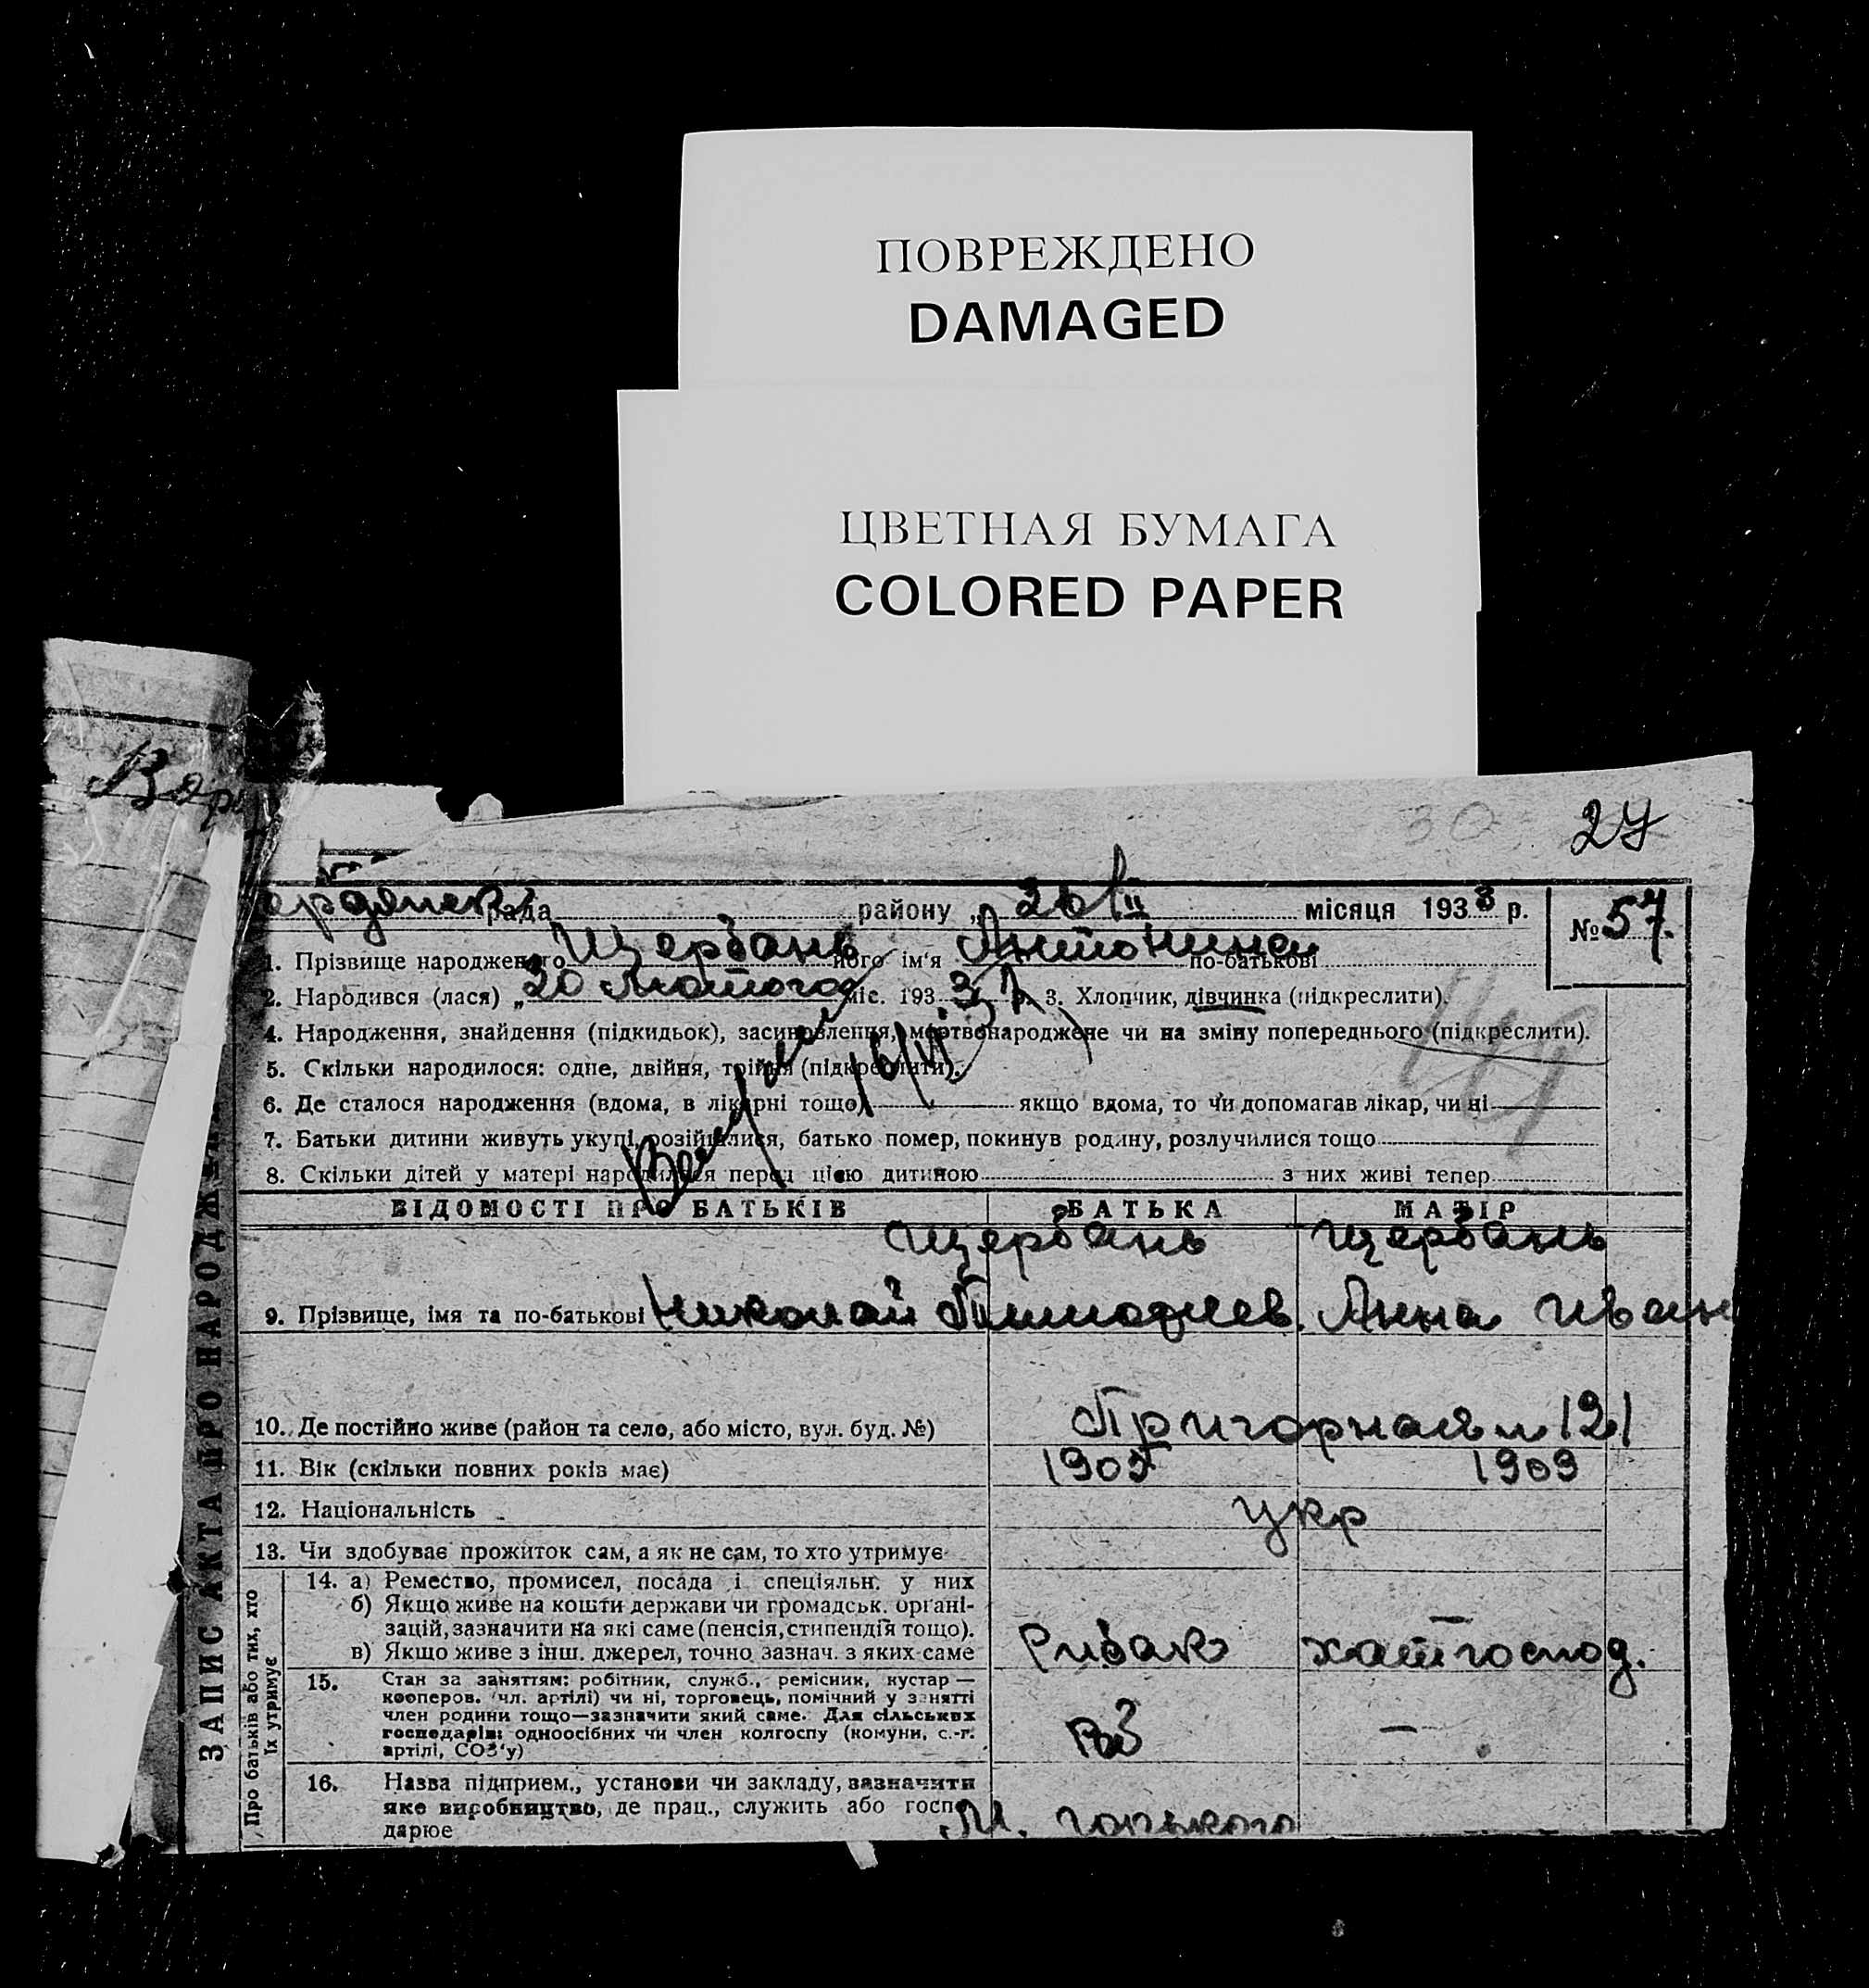 ПОВРЕЖДЕНО
DAMAGED
ЦВЕТНАЯ БУМАГА
COLORED PAPER
30
27
рада района „ 20/II місяця 1933 р. № 57.
1. Прізвище народженого Щербань його ім'я Антонина по-батькові
2. Народився (лася) „20 Лютого міс. 1933 р. 3. Хлопчик, дівчинка (підкреслити).
4. Народження, знайдення (підкидьок), засиновлення, мертвонароджене чи на зміну попереднього (підкреслити).
5. Скільки народилося: одне, двійня, трійня (підкреслити).
6. Де сталося народження (вдома, в лікарні тощо) якщо вдома, то чи допомагав лікар, чи ні
7. Батьки дитини живуть укупі, розійшлися, батько помер, покинув родину, розлучилися тощо
8. Скільки дітей у матері народилося перед цією дитиною з них живі тепер
ВІДОМОСТІ ПРО БАТЬКІВ БАТЬКА МАТІР
Щербань Щербань
9. Прізвище, імя та по-батькові Николай Тимофиев. Анна Иван
10. Де постійно живе (район та село, або місто, вул. буд. №) 121
11. Вік (скільки повних років має) 1905 1909
12. Національність укр
13. Чи здобуває прожиток сам, а як не сам, то хто утримує
ЗАПИС АКТА ПРО НАРОДЖЕН
Про батьків або тих, хто
їх утримує
14. а) Ремество, промисел, посада і спеціяльн. у них
б) Якщо живе на кошти держави чи громадськ. органі-
зацій, зазначити на які саме (пенсія, стипендія тощо).
в) Якщо живе з інш. джерел, точно зазнач. з яких саме Рибак хатгоспод.
15. Стан за заняттям: робітник, служб., ремісник, кустар —
кооперов. (чл. артілі) чи ні, торговець, помічний у занятті
член родини тощо—зазначити який саме. Для сільських
господарів: одноосібних чи член колгоспу (комуни, с.-г.
артілі, СОЗ'у) —
16. Назва підприєм., установи чи закладу, зазначити
яке виробництво, де прац., служить або госпо-
дарює М. Горького